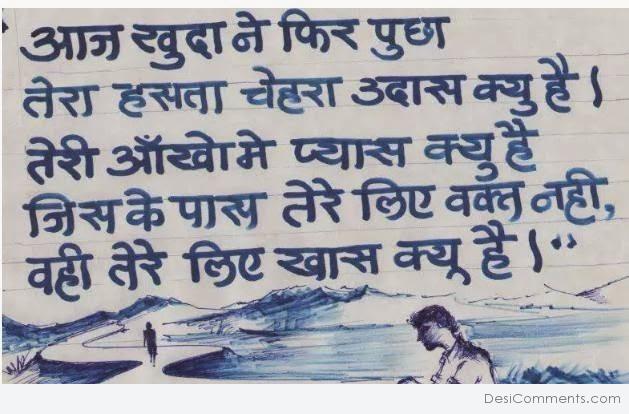 आज खुदा ने फिर पुछा
तेरा हसता चेहरा उदास क्यु है।
तेरी आँखोमे प्यास क्यु है
जिस के पास तेरे लिए वक्त नही,
वही तेरे लिए खास क्यू है।"
DesiComments.com